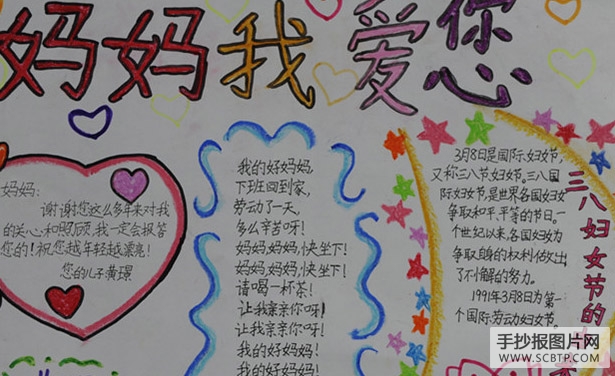 妈妈我爱你
妈妈:
谢谢您这么多年来对我
的关心和照顾,我一定会报答
您的!祝您越年轻越漂亮!
您的儿子黄璟
我的好妈妈,
下班回到家,
劳动了一天,
多么辛苦呀!
妈妈,妈妈,快坐下!
妈妈,妈妈,快坐下!
请喝一杯茶!
让我亲亲你呀!
让我亲亲你呀!
我的好妈妈!
我的好妈妈!
3月8日是国际妇女节,
又称三八节妇女节。三八国
际妇女节,是世界各国妇女
争取和平、平等的节日。一
个世纪以来,各国妇女为
争取自身的权利做出
了不懈的努力。
1991年3月8日为第一
个国际劳动妇女节。
三八妇女节的
手抄报图片网
WWW.SCBTP.COM